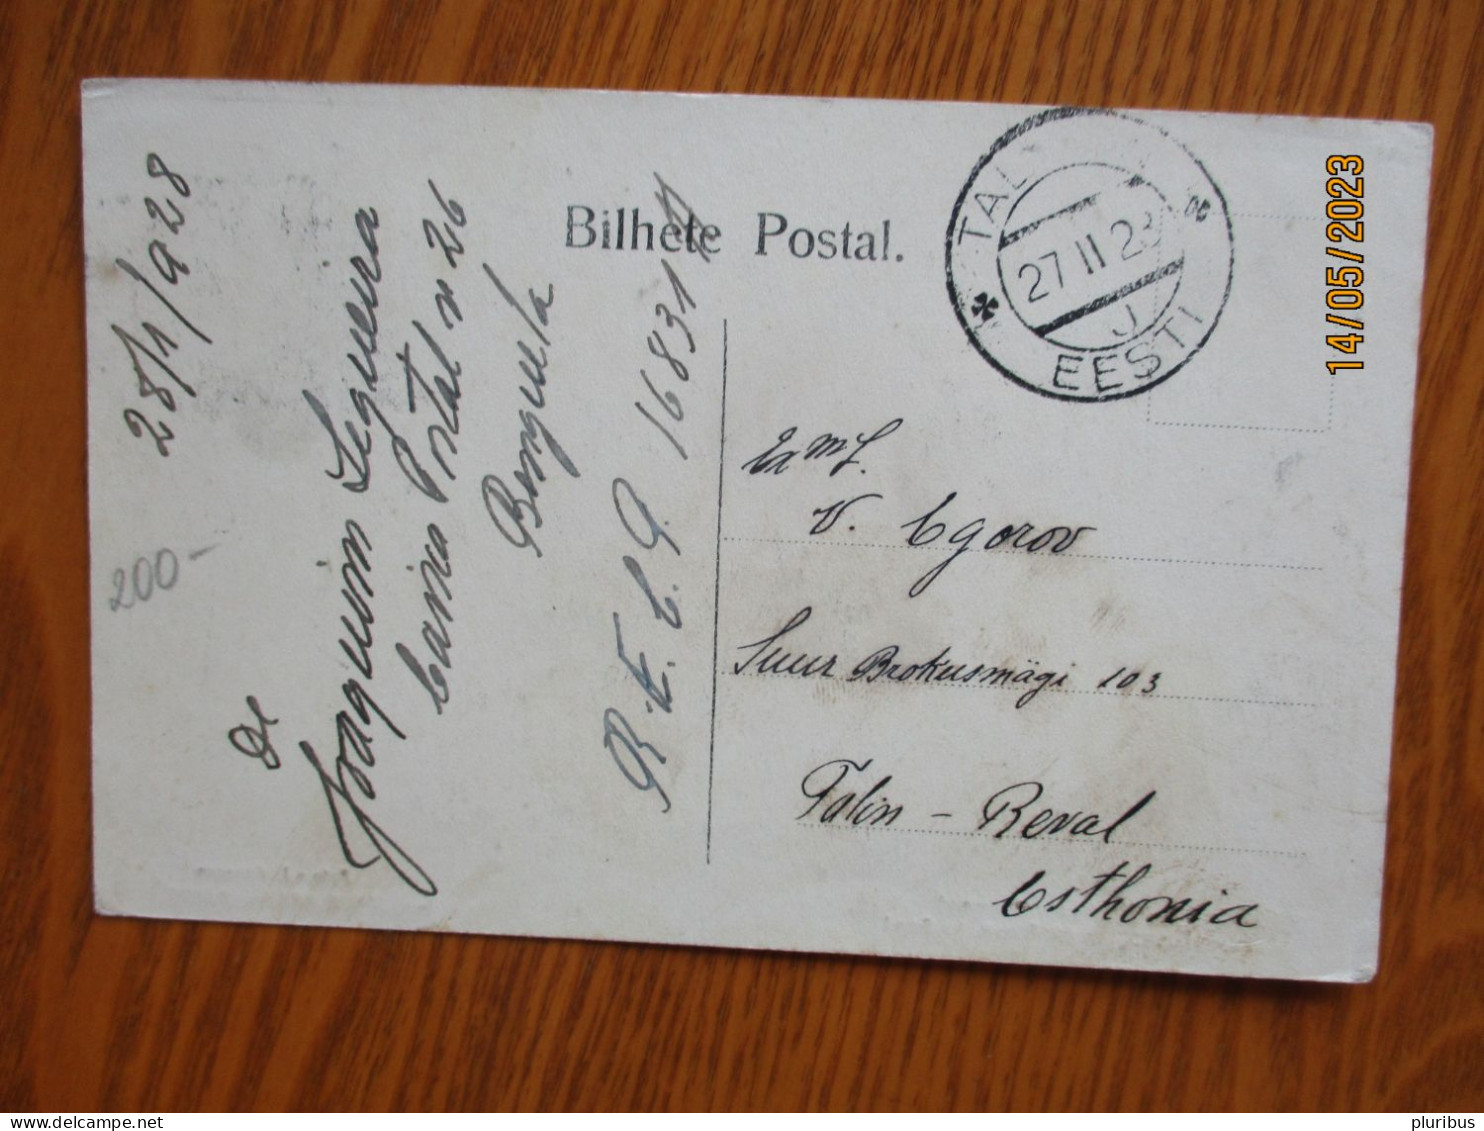 28/1/928
200-
De
Joaquim Sequeira
Caixa Postal nº 26
Benguela
R.E.C.P. 16831
Bilhete Postal.
TAL
27 II 28
J
EESTI
V. Egorov
Suur Brokusmägi 103
Talin - Reval
Esthonia
14/05/2023
pluribus